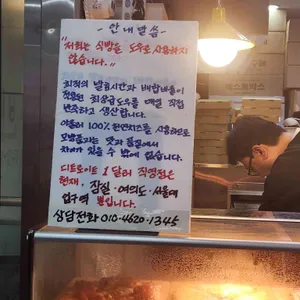 - 안내말씀 -
"저희는 식빵을 도우로 사용하지
않습니다."
최적의 발효시간과 배합비율이
적용된 최상급도우를 매일 직접
반죽하고 생산합니다.
아울러 100% 자연치즈를 사용하므로
모방품과는 맛과 품질에서
차이가 있을 수 밖에 없습니다.
디트로이트 1달러 직영점은
현재, 잠실·여의도·서울대
입구역 뿐입니다.
상담전화 010-4620-1345